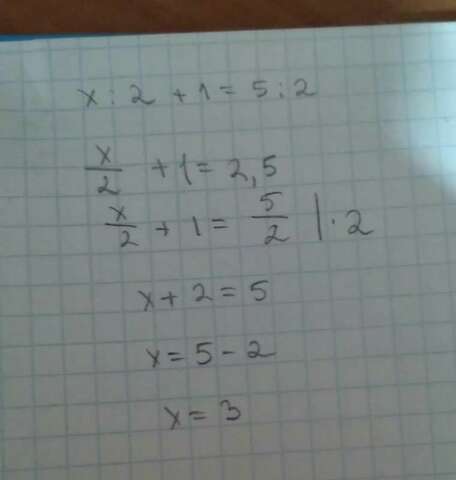 x : 2 + 1 = 5 : 2
x/2 + 1 = 2,5
x/2 + 1 = 5/2 | · 2
x + 2 = 5
x = 5 - 2
x = 3